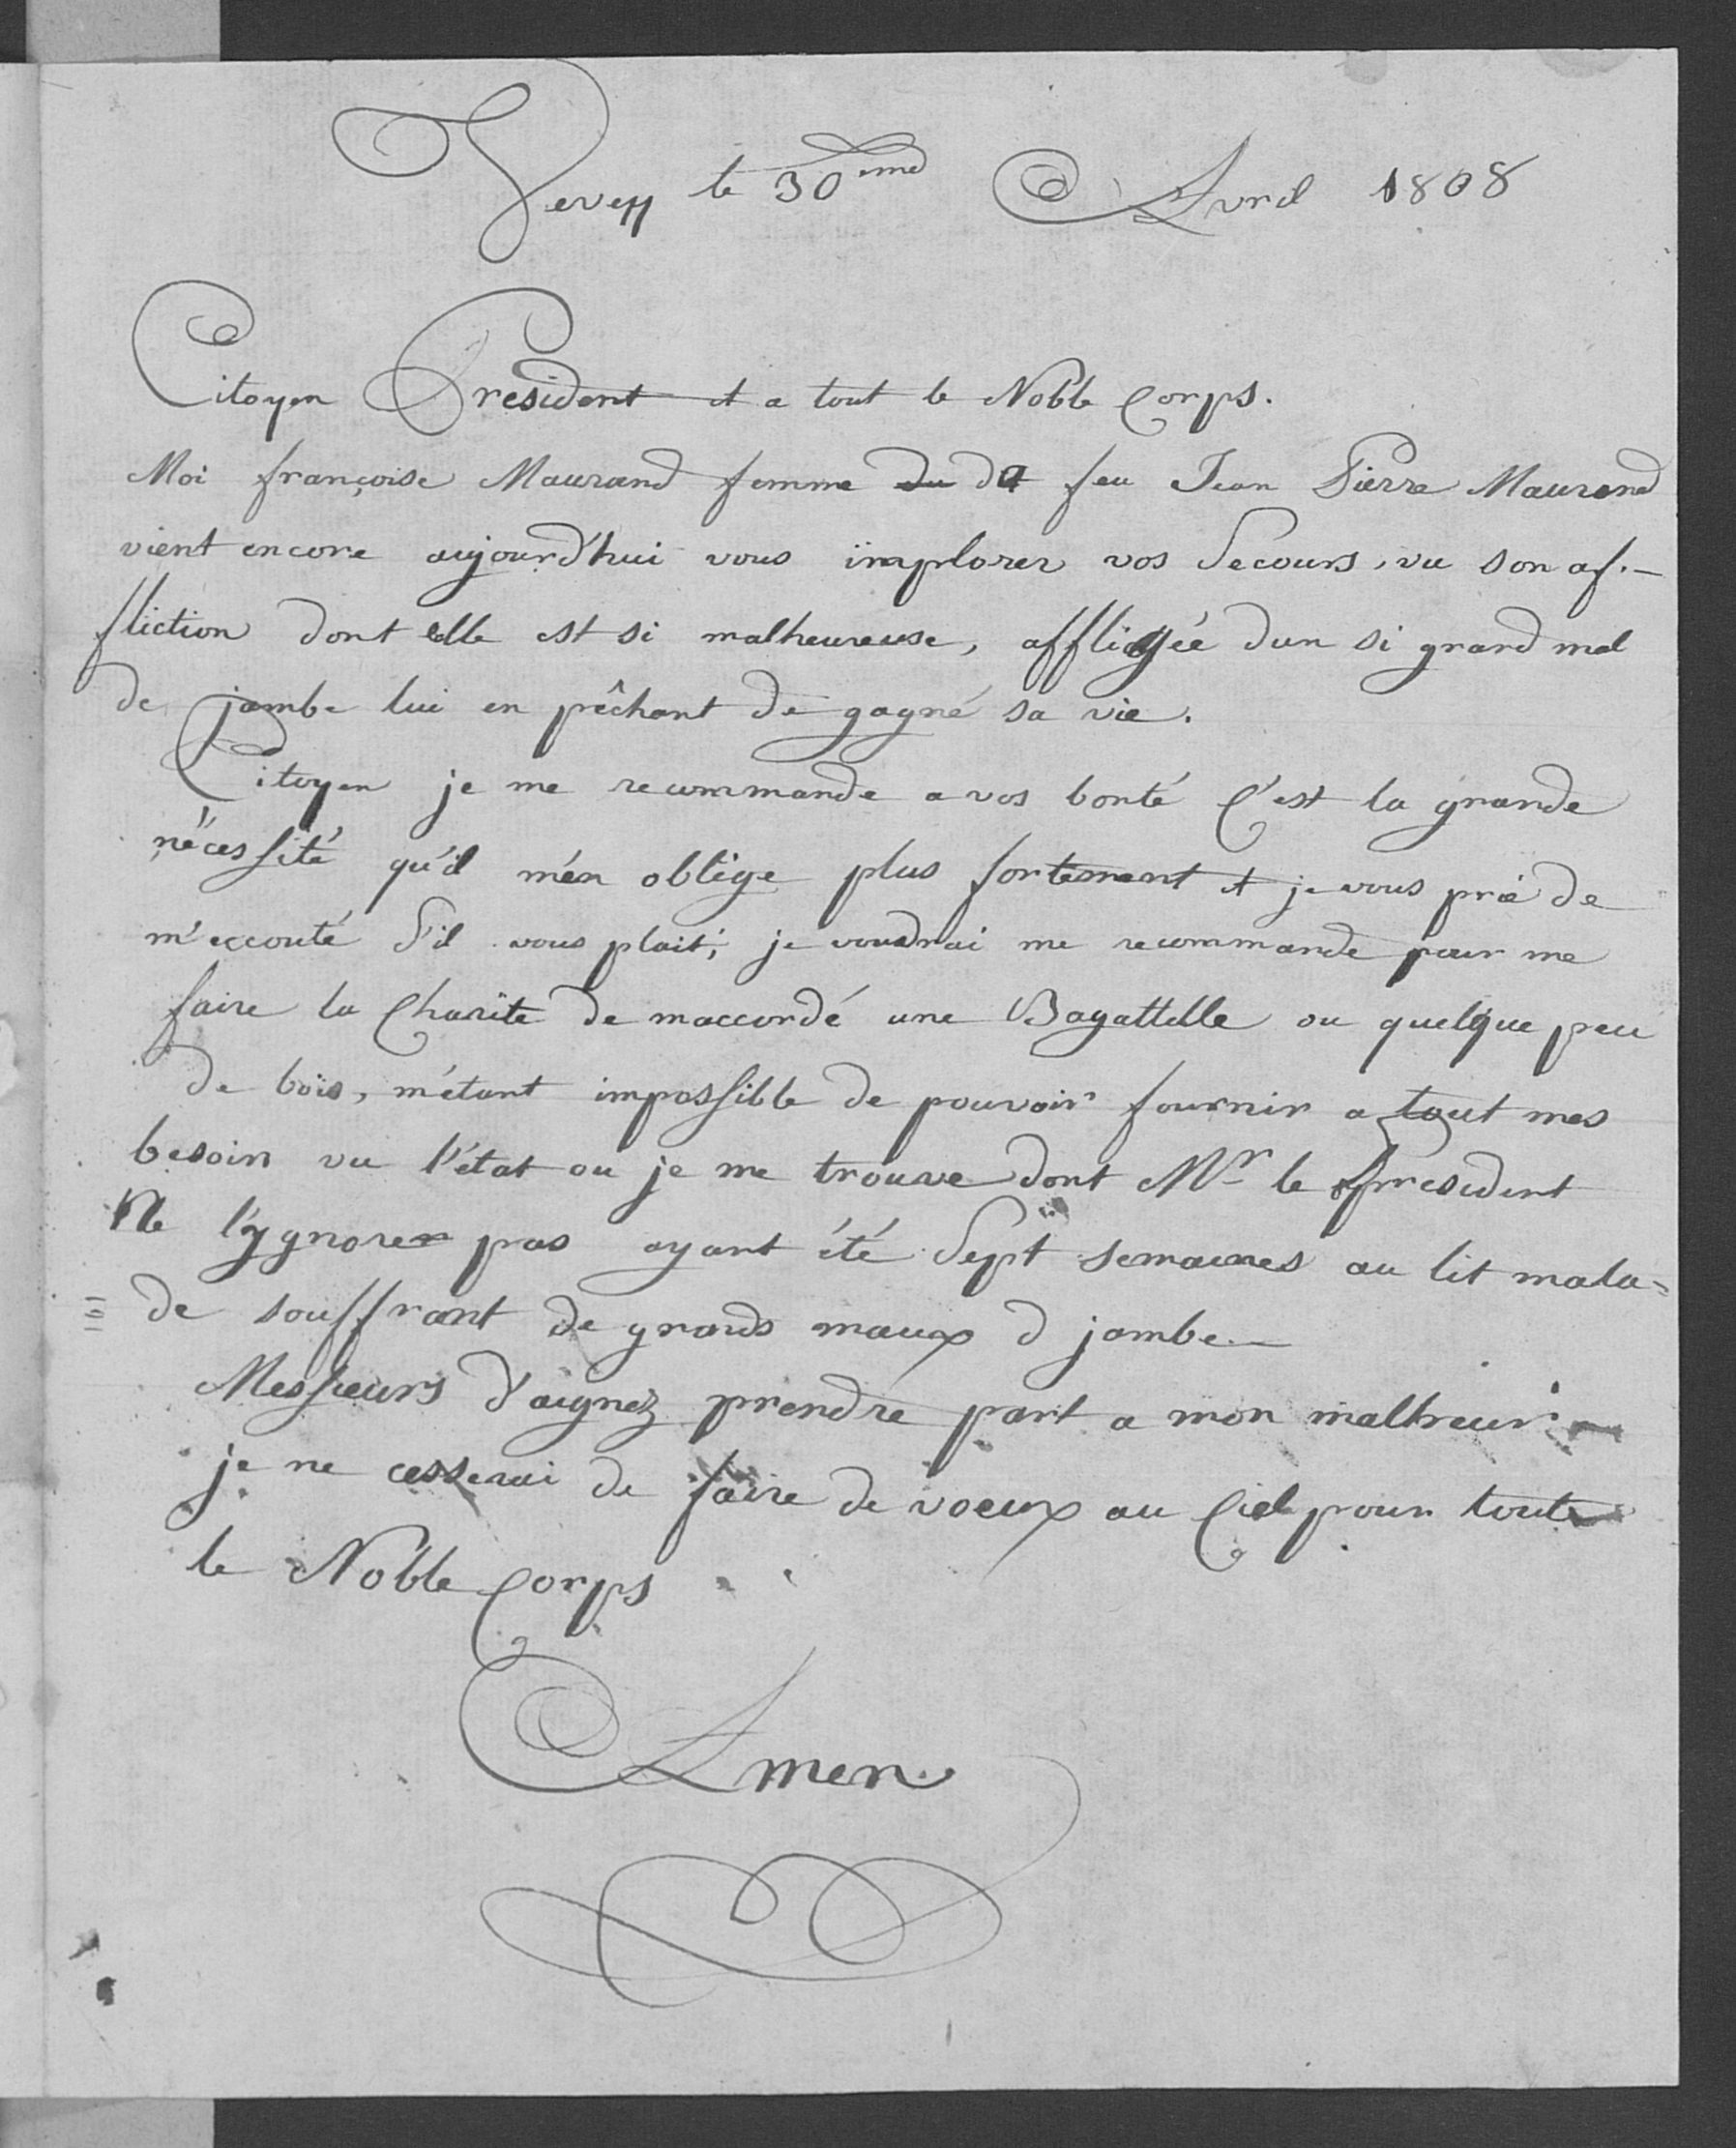 Vevey le 30eme Avril 1808
Citoyen President et a tout le Noble Corps.
Moi françoise Maurand femme du de feu Jean Pierre Maurand
vient encore aujourd'hui vous implorer vos Secours, vu son af-
fliction dont elle est si malheureuse, affligée dun si grand mal
de jambe lui en pêchant de gagné sa vie.
Citoyen je me recommande a vos bonté C'est la grande
nécessité qu'il m'én oblige plus fortement et je vous prie de
m'eccouté S'il vous plait; je voudrai me recommandé pour me
faire la Charité de maccordé une Bagattelle ou quelque peu
de bois, m'étant impossible de pouvoir fournir a tout mes
besoin vu l'état ou je me trouve dont Mr le president
Ne l'ygnore pas ayant été Sept semaines au lit mala=
de souffrant de grands maux d jambe
Messieurs d'aignez prendre part a mon malheur
je ne cesserai de faire de voeux au Ciel pour toute
le Noble Corps
Amen.